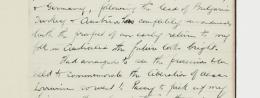 & Germany, following the lead of Bulgaria
Turkey & Austria completely
with the prospect of an early return to my
in Australia the future looks bright.
Had arranged to see the procession
held to commemorate the liberation of Alsace
Lorraine so went to Paris to pick up my